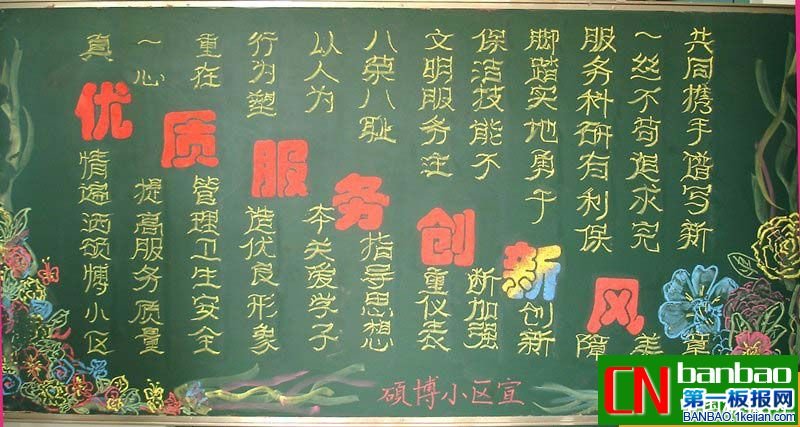 优质服务创新风
真情遍洒硕博小区
一心提高服务质量
重在管理卫生安全
行为塑造优良形象
以人为本关爱学子
八荣八耻指导思想
文明服务注重仪表
保洁技能不断加强
脚踏实地勇于创新
服务科研有利保障
一丝不苟追求完美
共同携手谱写新章
硕博小区宣
CN banbao
第一板报网
BANBAO.1kejian.com